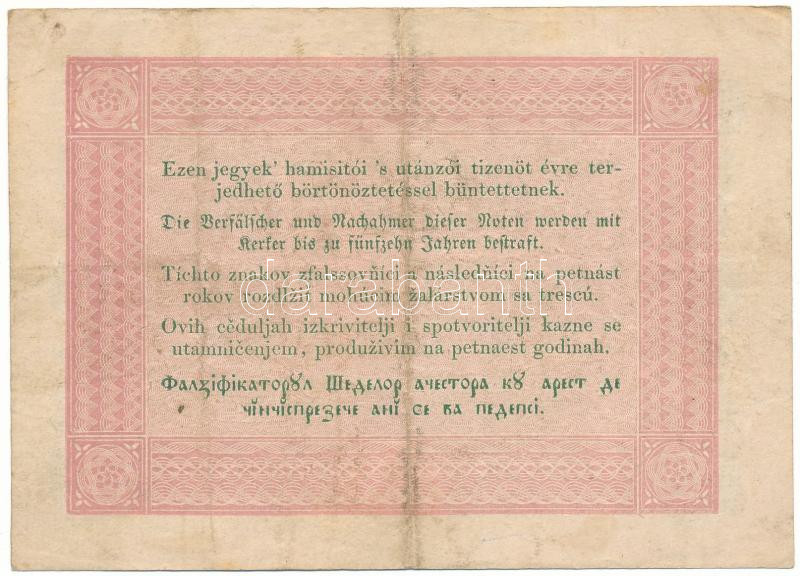 Ezen jegyek' hamisitói 's utánzói tizenöt évre ter-
jedhető börtönöztetéssel büntettetnek.
Die Verfälscher und Nachahmer dieser Noten werden mit
Kerker bis zu fünfzehn Jahren bestraft.
Tíchto znakov zfalssovňíci a následňíci na petnást
rokov rozdlžiť mohúcim žalárstvom sa trescú.
Ovih cěduljah izkrivitelji i spotvoritelji kazne se
utamničenjem, produživim na petnaest godinah.
Фалꙁіфікаторꙋл Шеделор ачестора кꙋ арест де
чінчіспрезече ані се ва педепсі.
darabanth